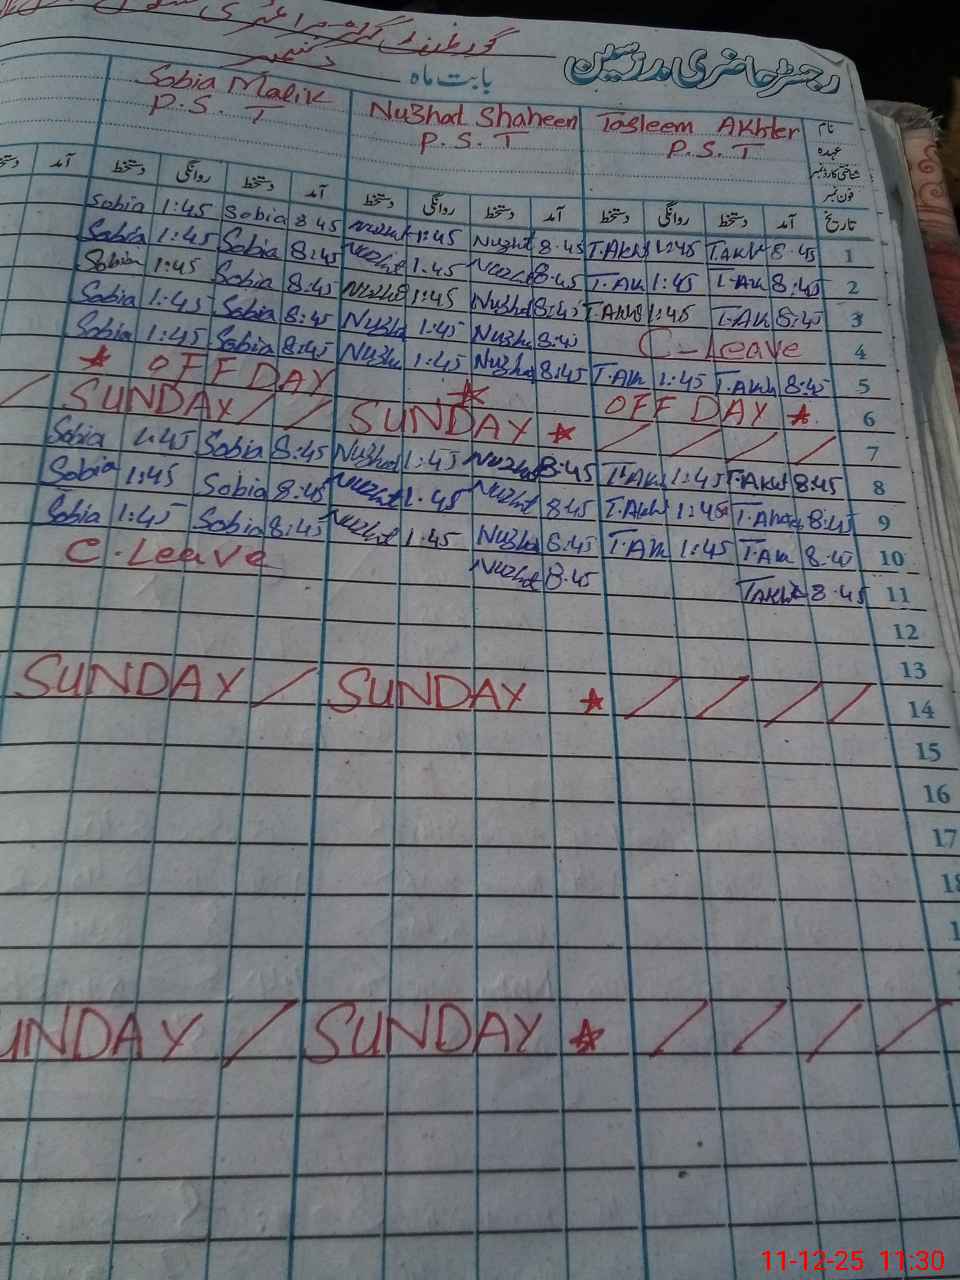 رجسٹر حاضری مدرسین
بابت ماہ دسمبر
نام Tasleem Akhter Nuzhat Shaheen Sobia Malik
عہدہ P.S.T P.S.T P.S.T
شناختی کارڈ نمبر
فون نمبر
تاریخ آمد دستخط روانگی دستخط آمد دستخط روانگی دستخط آمد دستخط روانگی دستخط آمد
1 8.45 T.Akh 1:45 T.Akh 8.45 Nuzht 1:45 Nuzht 8 45 Sobia 1:45 Sobia
2 8:45 T.Ak 1:45 T.Ak 8:45 Nuzht 1.45 Nuzhat 8:45 Sobia 1:45 Sobia
3 8:45 T.Ak 1:45 T.Akh 8:45 Nuzhd 1:45 Nuzhd 8:45 Sobia 1:45 Sobia
4 C-Leave 8:45 Nuzh 1:45 Nuzhd 8:45 Sobia 1:45 Sobia
5 8:45 T.Akh 1:45 T.Ak 8:45 Nuzhd 1:45 Nuzh 8:45 Sobia 1:45 Sobia
6 OFF DAY OFF DAY
7 SUNDAY SUNDAY
8 8:45 T.Akh 1:45 T.Akh 8:45 Nuzhd 1:45 Nuzhad 8:45 Sobia 1:45 Sobia
9 8:45 1:45 T.Akh 8:45 Nuzht 1.45 Nuzht 8:45 Sobia 1:45 Sobia
10 8.45 T.Ak 1:45 T.Ak 8:45 Nuzhd 1:45 Nuzht 8:45 Sobia 1:45 Sobia
11 8.45 T.Akh 8.45 Nuzht C.Leave
12
13
14 SUNDAY SUNDAY
15
16
17
18
SUNDAY UNDAY
11-12-25 11:30